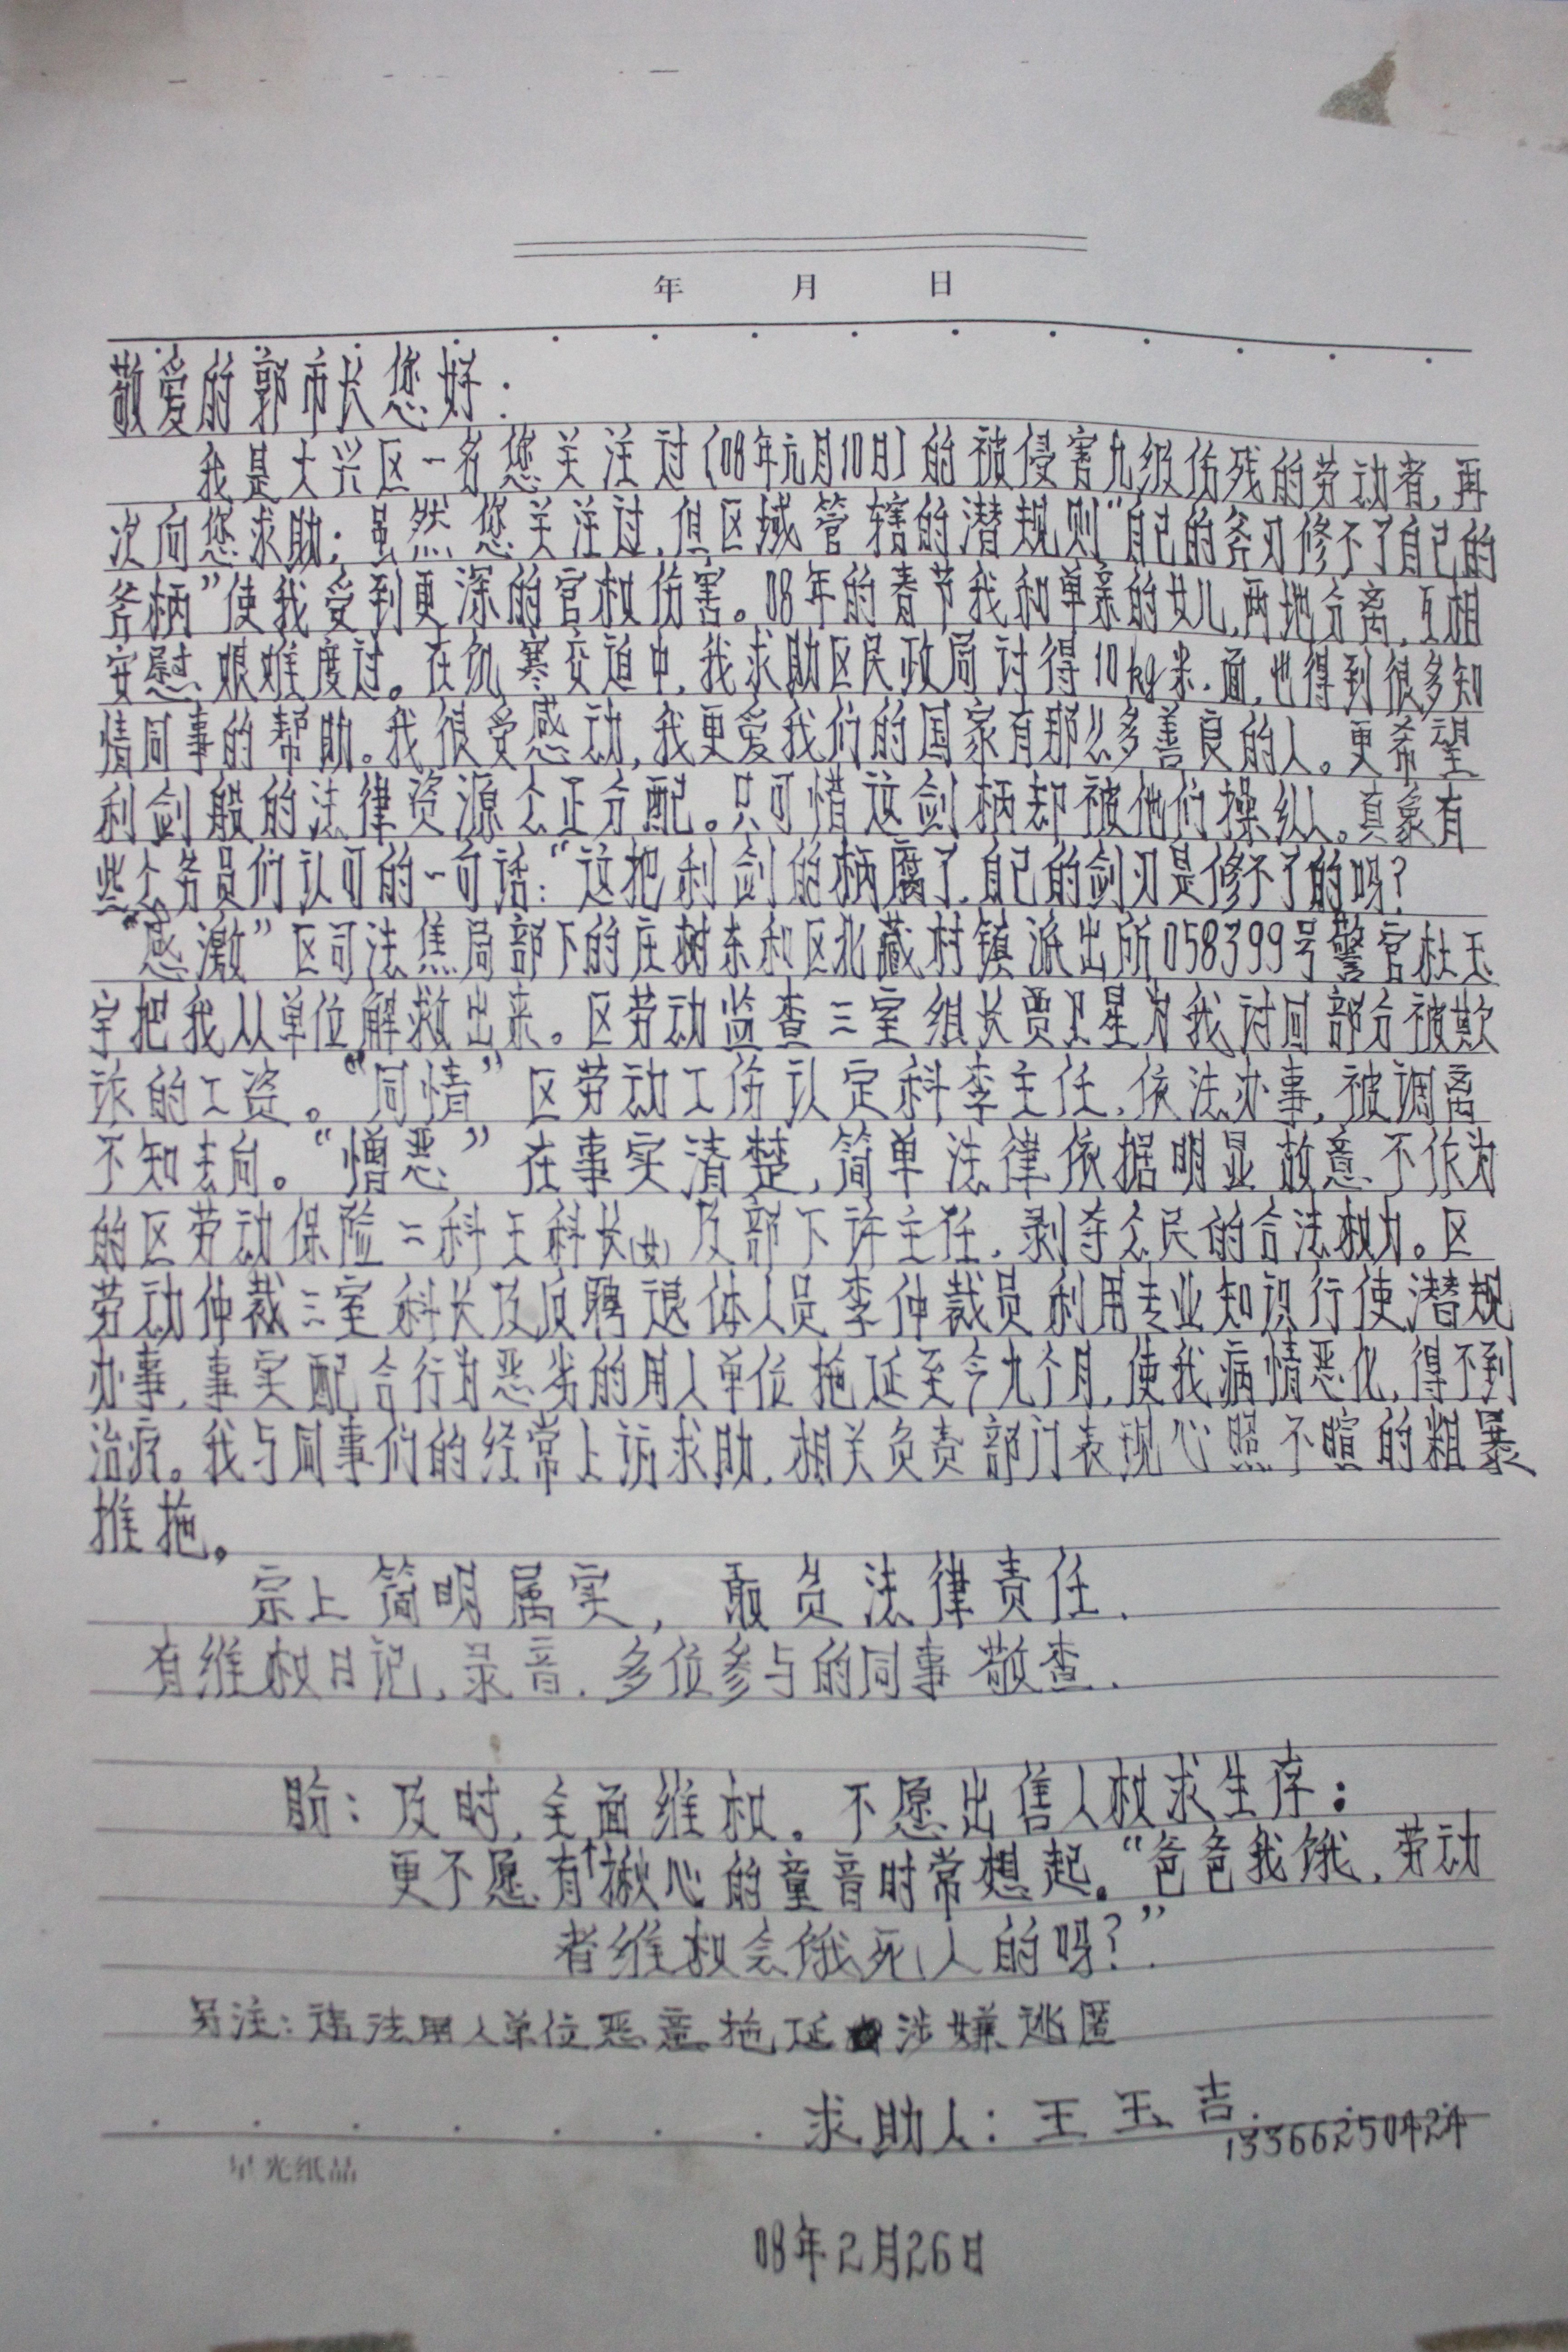 年 月 日
敬爱的郭市长您好:
我是大兴区一名您关注过(08年元月10日)的被侵害九级伤残的劳动者,再
次向您求助:虽然您关注过,但区域管辖的潜规则"自己的斧刃修不了自己的
斧柄"使我受到更深的官权伤害。08年的春节我和单亲的女儿,两地分离,互相
安慰艰难度过。在饥寒交迫中,我求助区民政局讨得10kg米.面,也得到很多知
情同事的帮助。我很受感动,我更爱我们的国家有那么多善良的人。更希望
利剑般的法律资源公正分配。只可惜这剑柄却被他们操纵。真象有
些公务员们认可的一句话:"这把利剑的柄腐了,自己的剑刃是修不了的吗?
"感激"区司法焦局部下的庄树东和区北藏村镇派出所058399号警官杜玉
宇把我从单位解救出来。区劳动监查三室组长贾卫星为我讨回部分被欺
诈的工资。"同情"区劳动工伤认定科李主任,依法办事,被调离
不知去向。"憎恶"在事实清楚,简单法律依据明显故意不作为
的区劳动保险二科王科长(女)及部下许主任,剥夺公民的合法权力。区
劳动仲裁三室科长及反聘退休人员李仲裁员利用专业知识行使潜规
办事,事实配合行为恶劣的用人单位拖延至今九个月,使我病情恶化,得不到
治疗。我与同事们的经常上访求助,相关负责部门表现心照不暄的粗暴
推拖。
宗上简明属实,敢负法律责任.
有维权日记,录音,多位参与的同事敬查.
盼:及时,全面维权。不愿出售人权求生存:
更不愿有个揪心的童音时常想起。"爸爸我饿,劳动
者维权会饿死人的吗?"
另注:违法用人单位恶意拖延涉嫌逃匿
求助人:王玉吉.
13366250424
星光纸品
08年2月26日